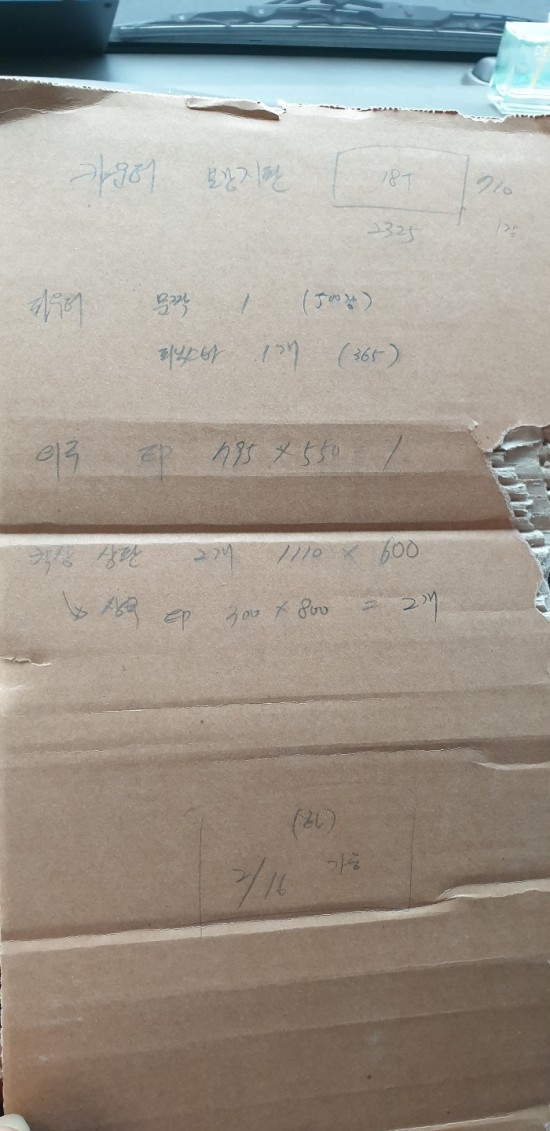 카운터 보강지판 18T 910
2325 1장
카운터 문짝 1 (500장)
피스바 1개 (365)
EP 795 × 550 = 1
책상 상판 2개 1110 × 600
↳ EP 300 × 800 = 2개
2/16 가능